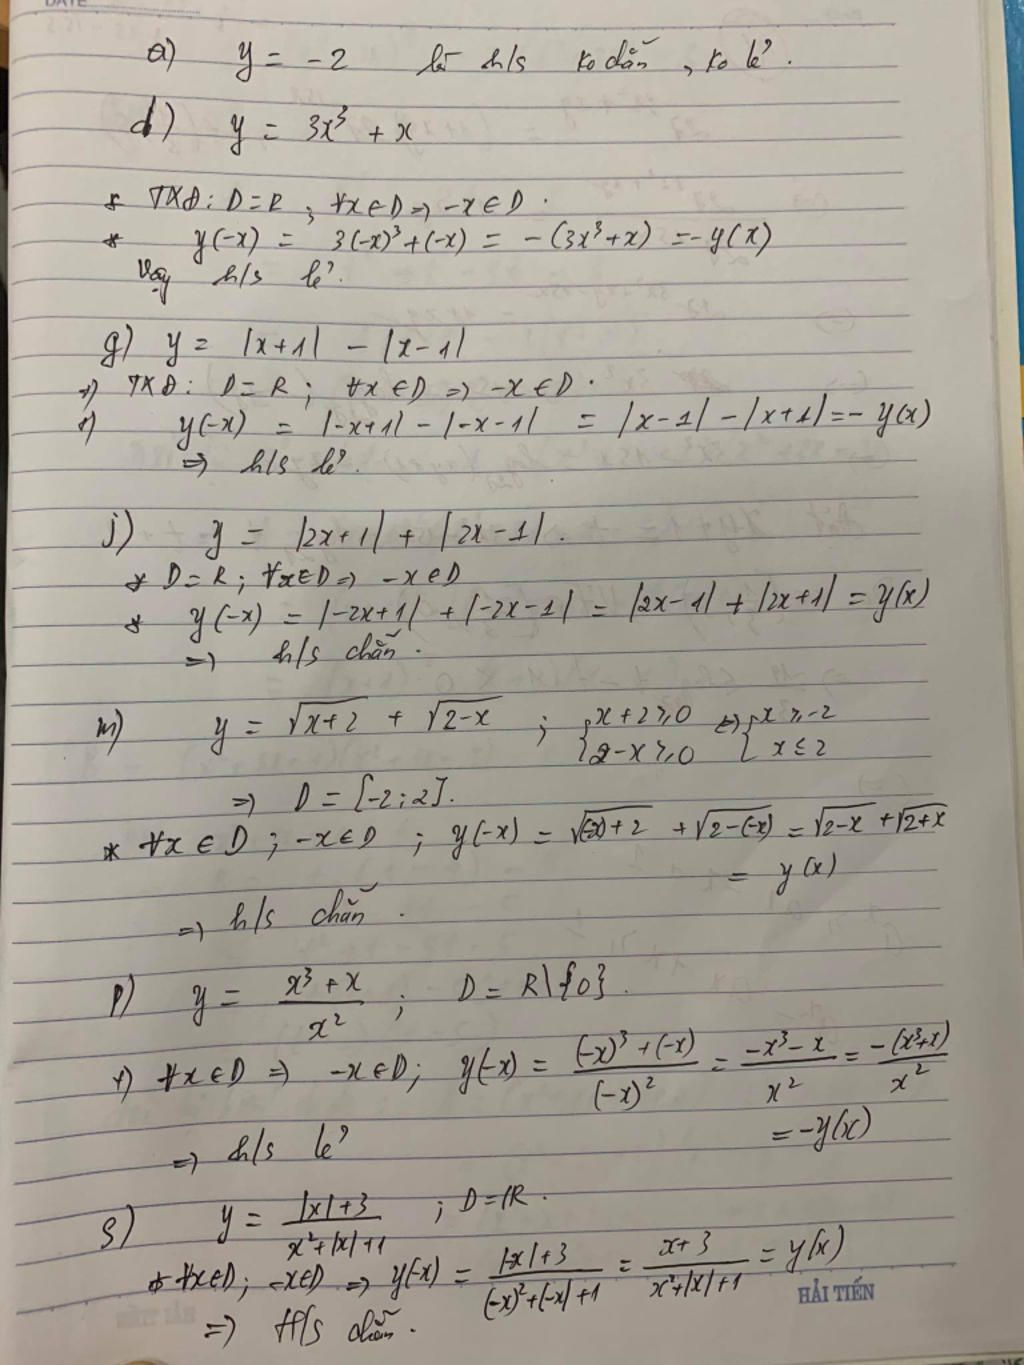 DATE
a) y = -2 là h/s ko chẵn, ko lẻ.
d) y = 3x³ + x
* TXĐ: D = R ; ∀x∈D ⇒ -x∈D.
* y(-x) = 3(-x)³+(-x) = -(3x³+x) = -y(x)
Vậy h/s lẻ.
g) y = |x+1| - |x-1|
+) TXĐ: D = R ; ∀x∈D ⇒ -x∈D.
+) y(-x) = |-x+1| - |-x-1| = |x-1| - |x+1| = -y(x)
⇒ h/s lẻ.
j) y = |2x+1| + |2x-1|.
* D = R ; ∀x∈D ⇒ -x∈D
* y(-x) = |-2x+1| + |-2x-1| = |2x-1| + |2x+1| = y(x)
⇒ h/s chẵn.
m) y = √(x+2) + √(2-x) ; {x+2≥0, 2-x≥0 ⇔ {x≥-2, x≤2
⇒ D = [-2;2].
* ∀x∈D ; -x∈D ; y(-x) = √((-x)+2) + √(2-(-x)) = √(2-x) + √(2+x)
= y(x)
⇒ h/s chẵn.
p) y = (x³+x)/x² ; D = R\{0}.
+) ∀x∈D ⇒ -x∈D ; y(-x) = ((-x)³+(-x))/(-x)² = (-x³-x)/x² = -(x³+x)/x²
= -y(x)
⇒ h/s lẻ
s) y = (|x|+3)/(x²+|x|+1) ; D = R.
* ∀x∈D ; -x∈D ⇒ y(-x) = (|-x|+3)/((-x)²+|-x|+1) = (x+3)/(x²+|x|+1) = y(x)
HẢI TIẾN
⇒ H/s chẵn.